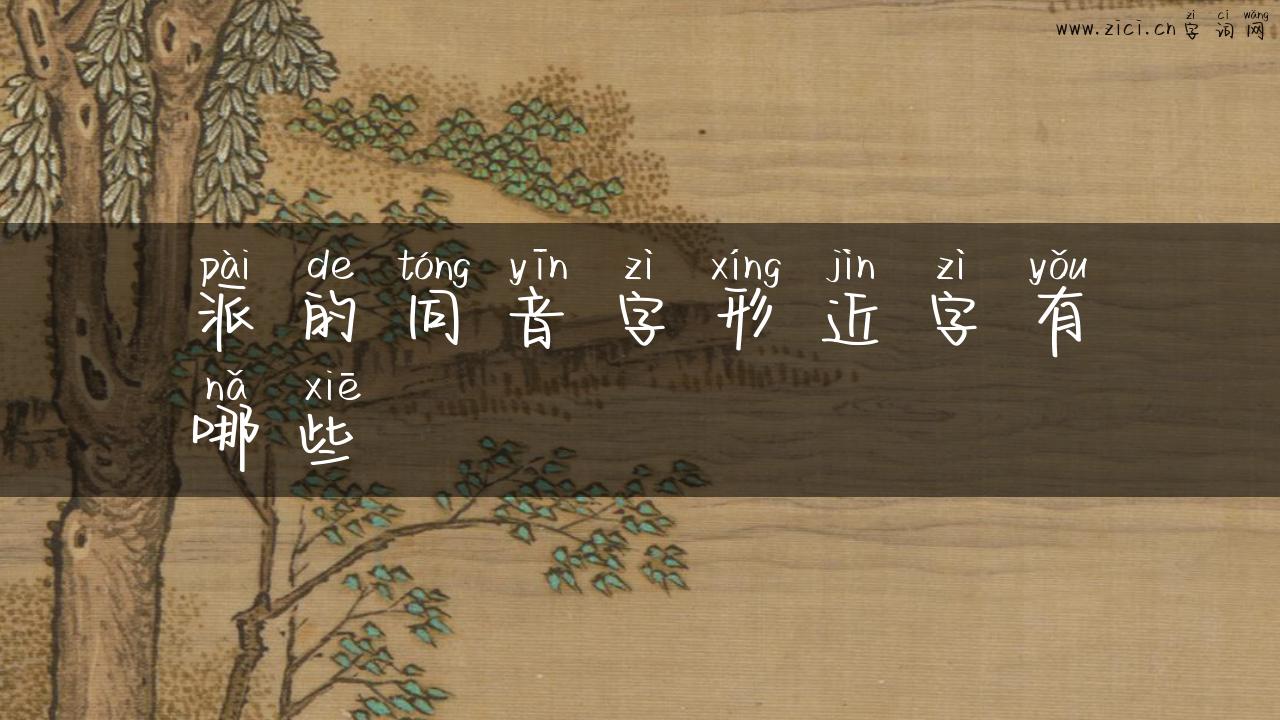 zì cí wǎng
www.zici.cn 字词网
pài de tóng yīn zì xíng jìn zì yǒu
派的同音字形近字有
nǎ xiē
哪些